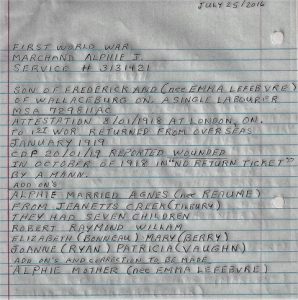 JULY 25/2016
FIRST WORLD WAR
MARCHAND ALPHIE J.
SERVICE # 3131421
SON OF FREDERICK AND (nee EMMA LEFEBVRE)
OF WALLACEBURG ON. A SINGLE LABOURER
MSA 789811AC
ATTESTATION 8/01/1918 AT LONDON, ON.
TO 1ST WOR RETURNED FROM OVERSEAS
JANUARY 1919
CDP 20/01/19 REPORTED WOUNDED
IN OCTOBER OF 1918 IN "NO RETURN TICKET"
BY A. MANN.
ADD ON'S
ALPHIE MARRIED AGNES (nee REAUME)
FROM JEANETTS CREEK (TILBURY)
THEY HAD SEVEN CHILDREN
ROBERT RAYMOND WILLAM
ELIZABETH (BONNEAU) MARY (BERRY)
JOANNE (RYAN) PATRICIA (VAUGHN)
ADD ON'S AND CORRECTION TO BE MADE
ALPHIE MOTHER (nee EMMA LEFEBVRE)